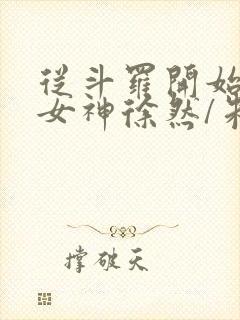 從斗羅開始
女神徐然/
撐破天